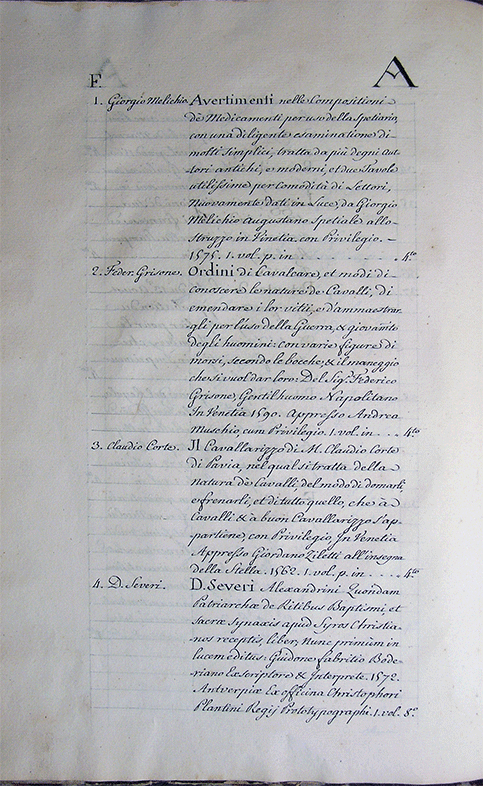 F. A
1. Giorgio Melichio. Avertimenti nelle Compositioni
de Medicamenti per uso della Spetiaria,
con una diligente esaminatione di
molti Simplici, tratta da più degni Aut
tori antichi, e moderni, et due Tavole
utilissime per Comodità di Lettori,
Nuovamente dati in Luce, da Giorgio
Melichio Augustano Spetiale allo
Struzzo in Venetia. con Privilegio.
1575. 1. vol. p. in 4.to
2. Feder. Grisone. Ordini di Cavalcare, et modi di
conoscere le nature de Cavalli, di
emendare i lor vitii, e d'ammaestrar
gli per l'uso della Guerra, & giovam̃to
degli huomini: con varie figure di
morsi, secondo le bocche; & il maneggio
che si vuol dar loro: Del Sig.r Federico
Grisone, Gentilhuomo Napolitano
In Venetia 1590. Appresso Andrea
Muschio, cum Privilegio. 1. vol. in 4.to
3. Claudio Corte. Il Cavallarizzo di M. Claudio Corte
di Pavia, nel qual si tratta della
Natura de Cavalli, del modo di domarli,
e frenarli, et di tutto quello, che à
Cavalli & à buon Cavallarizzo s'ap-
partiene, con Privilegio, In Venetia
Appresso Giordano Ziletti all'insegna
della Stella. 1562. 1. vol. p. in 4.to
4. D. Severi. D. Severi Alexandrini Quondam
Patriarchæ de Ritibus Baptismi, et
Sacræ Synaxis apud Syros Christia-
nos receptis, liber, Nunc primùm in
lucem editus: Guidone fabritio Bode-
riano Exscriptore & Interprete. 1572.
Antverpiæ Ex officina Christophori
Plantini Regij Prototypographi. 1. vol. 8.o